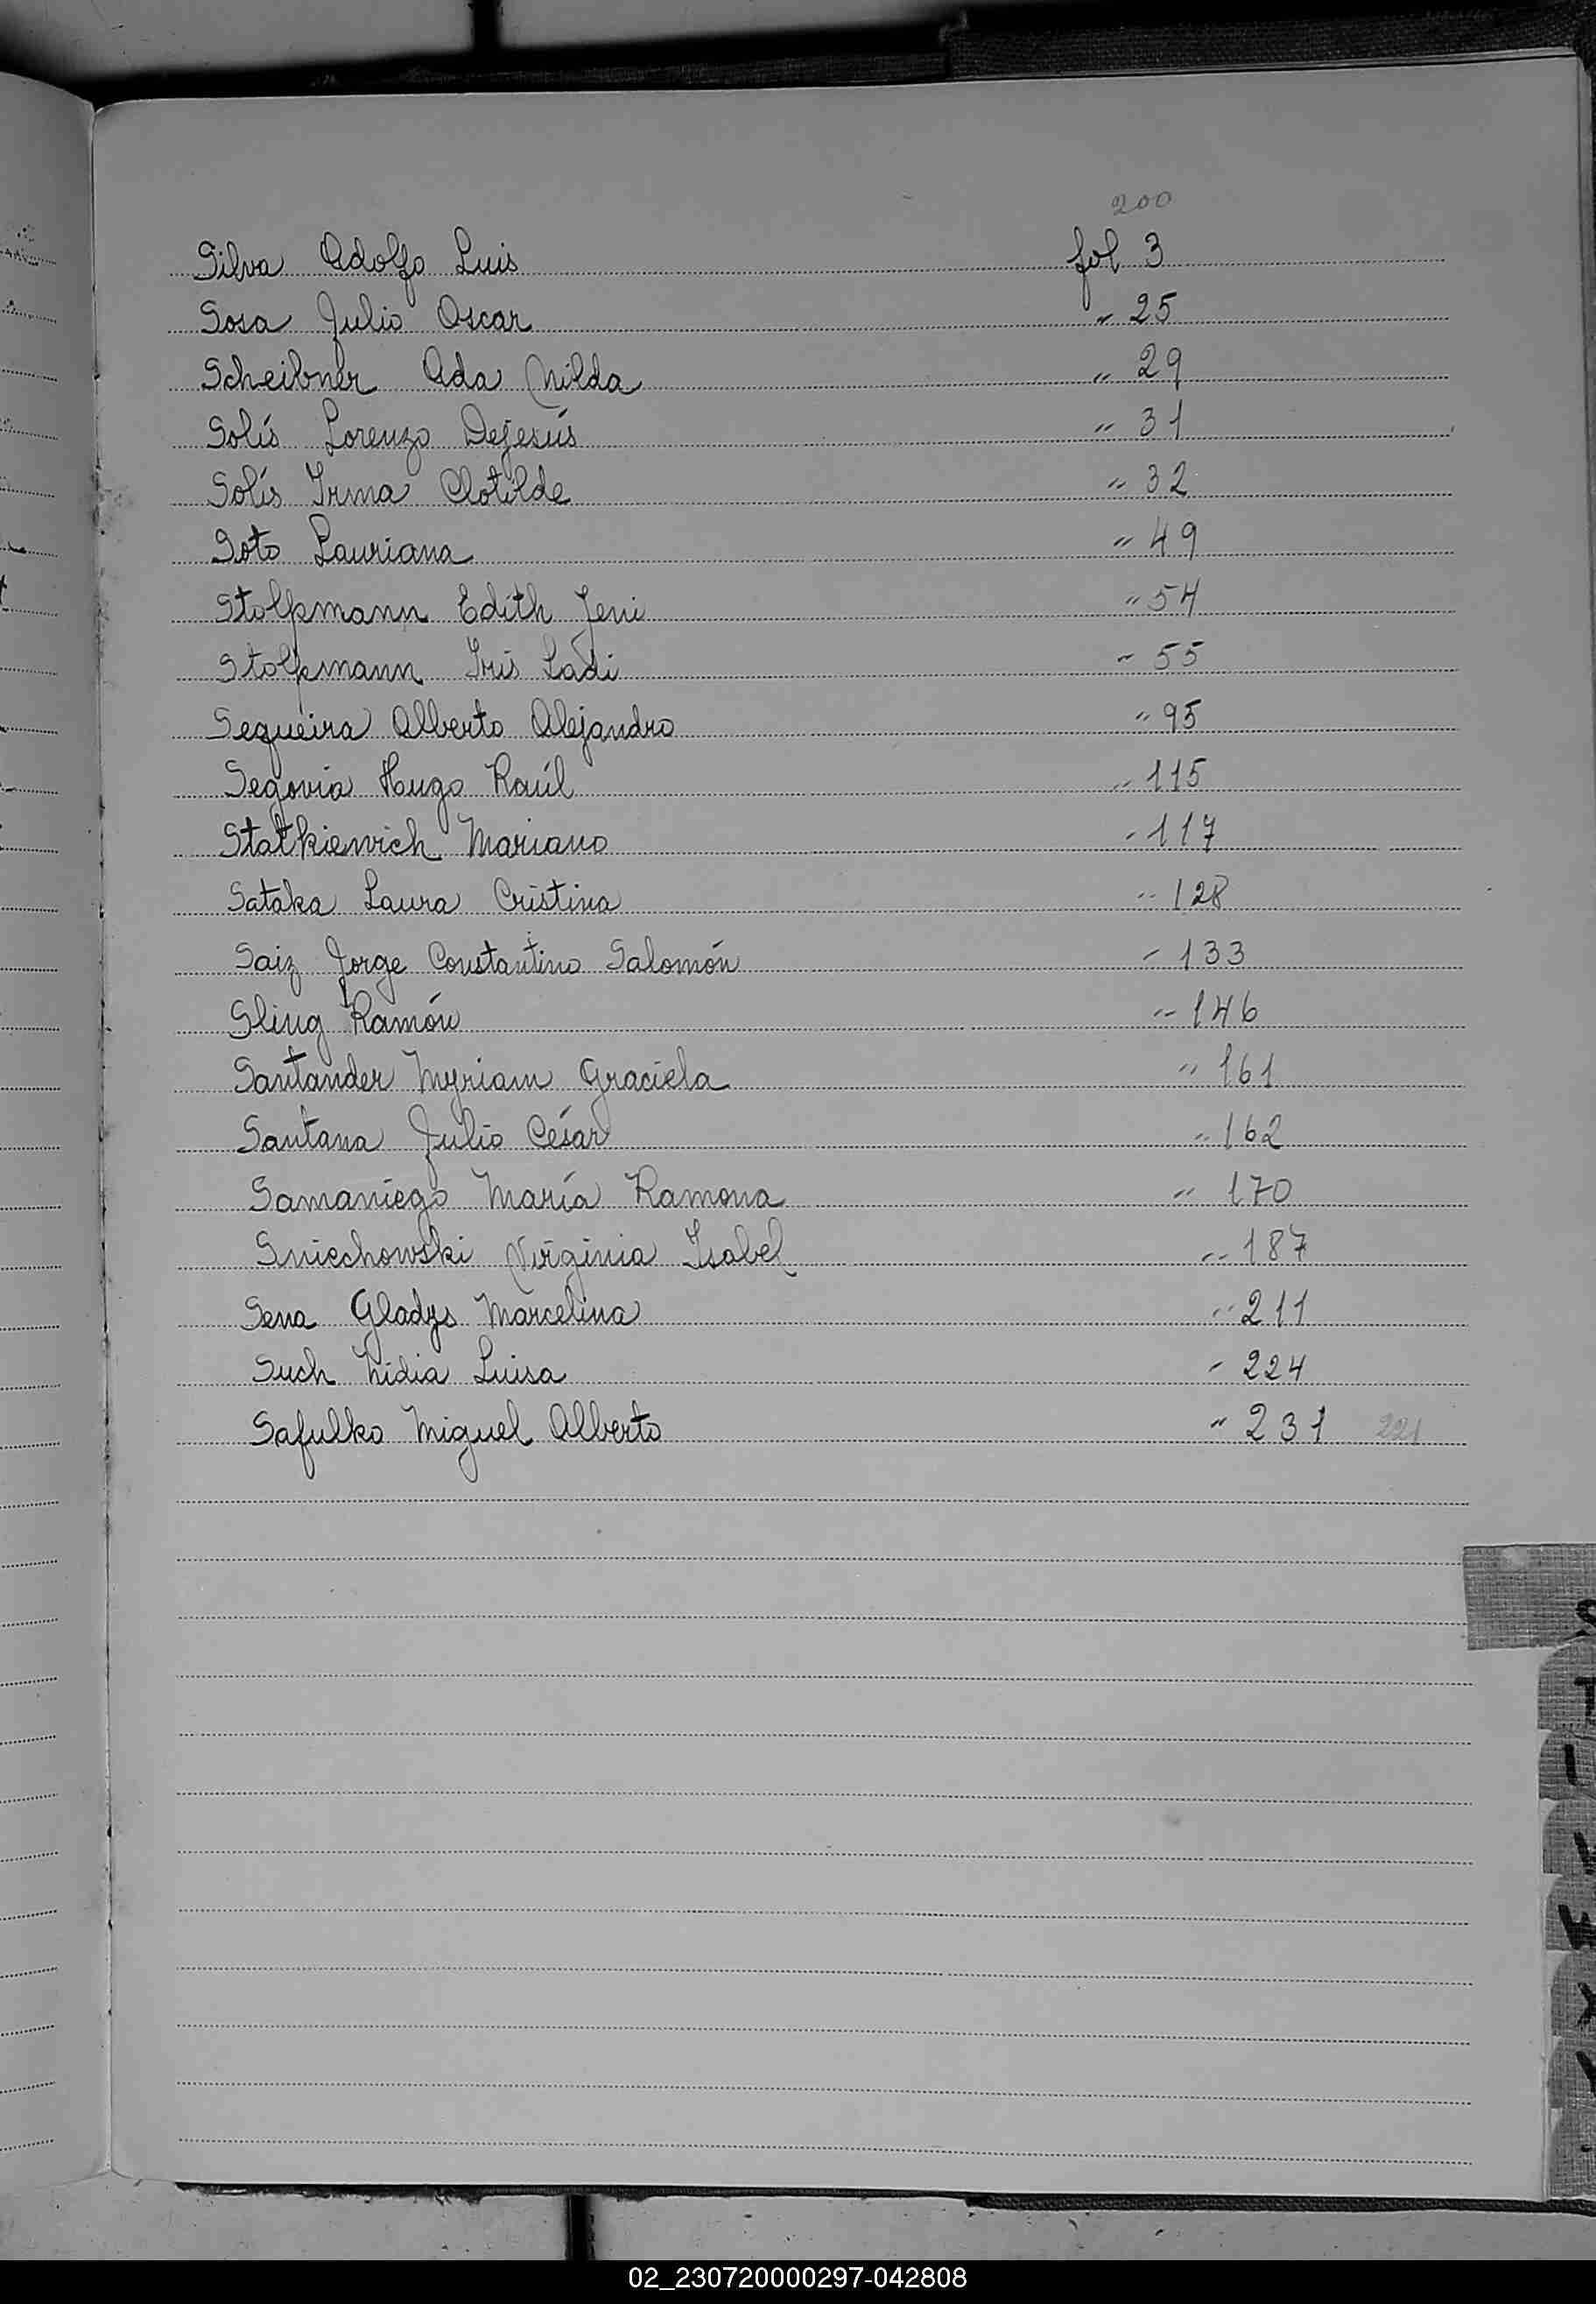 200
Silva Adolfo Luis fol 3
Sosa Julio Oscar " 25
Scheibner Ada Nilda " 29
Solís Lorenzo Dejesús " 31
Solís Irma Clotilde " 32
Soto Lauriana " 49
Stolpmann Edith Jeni " 54
Stolpmann Iris Ladi " 55
Sequeira Alberto Alejandro " 95
Segovia Hugo Raúl " 115
Statkiewich Mariano " 117
Sataka Laura Cristina " 128
Saiz Jorge Constantino Salomón " 133
Sling Ramón " 146
Santander Myriam Graciela " 161
Santana Julio César " 162
Samaniego María Ramona " 170
Sniechowski Virginia Isabel " 187
Sena Gladys Marcelina " 211
Such Lidia Luisa " 224
Safulko Miguel Alberto " 231 221
S
T
02_230720000297-042808